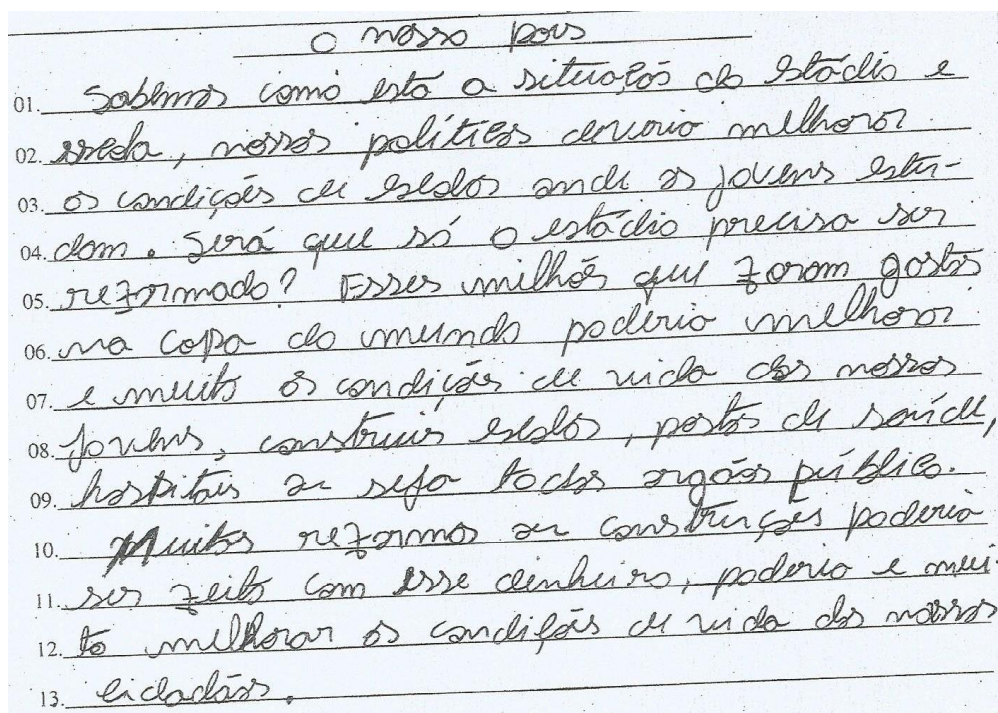 O nosso pais
01. Sabemos como está a situação do estádio e
02. escola, nossos políticos deveria melhorar
03. as condições de escolas onde os jovens estu-
04. dam. Será que só o estádio precisa ser
05. reformado? Esses milhões que foram gastos
06. na copa do mundo poderia melhorar
07. e muito as condições de vida dos nossos
08. jovens, construir escolas, postos de saúde,
09. hospitais ou seja todos orgãos público.
10. Muitas reformas ou construções poderia
11. ser feito com esse dinheiro, poderia e mui-
12. to melhorar as condições de vida dos nossos
13. cidadãos.